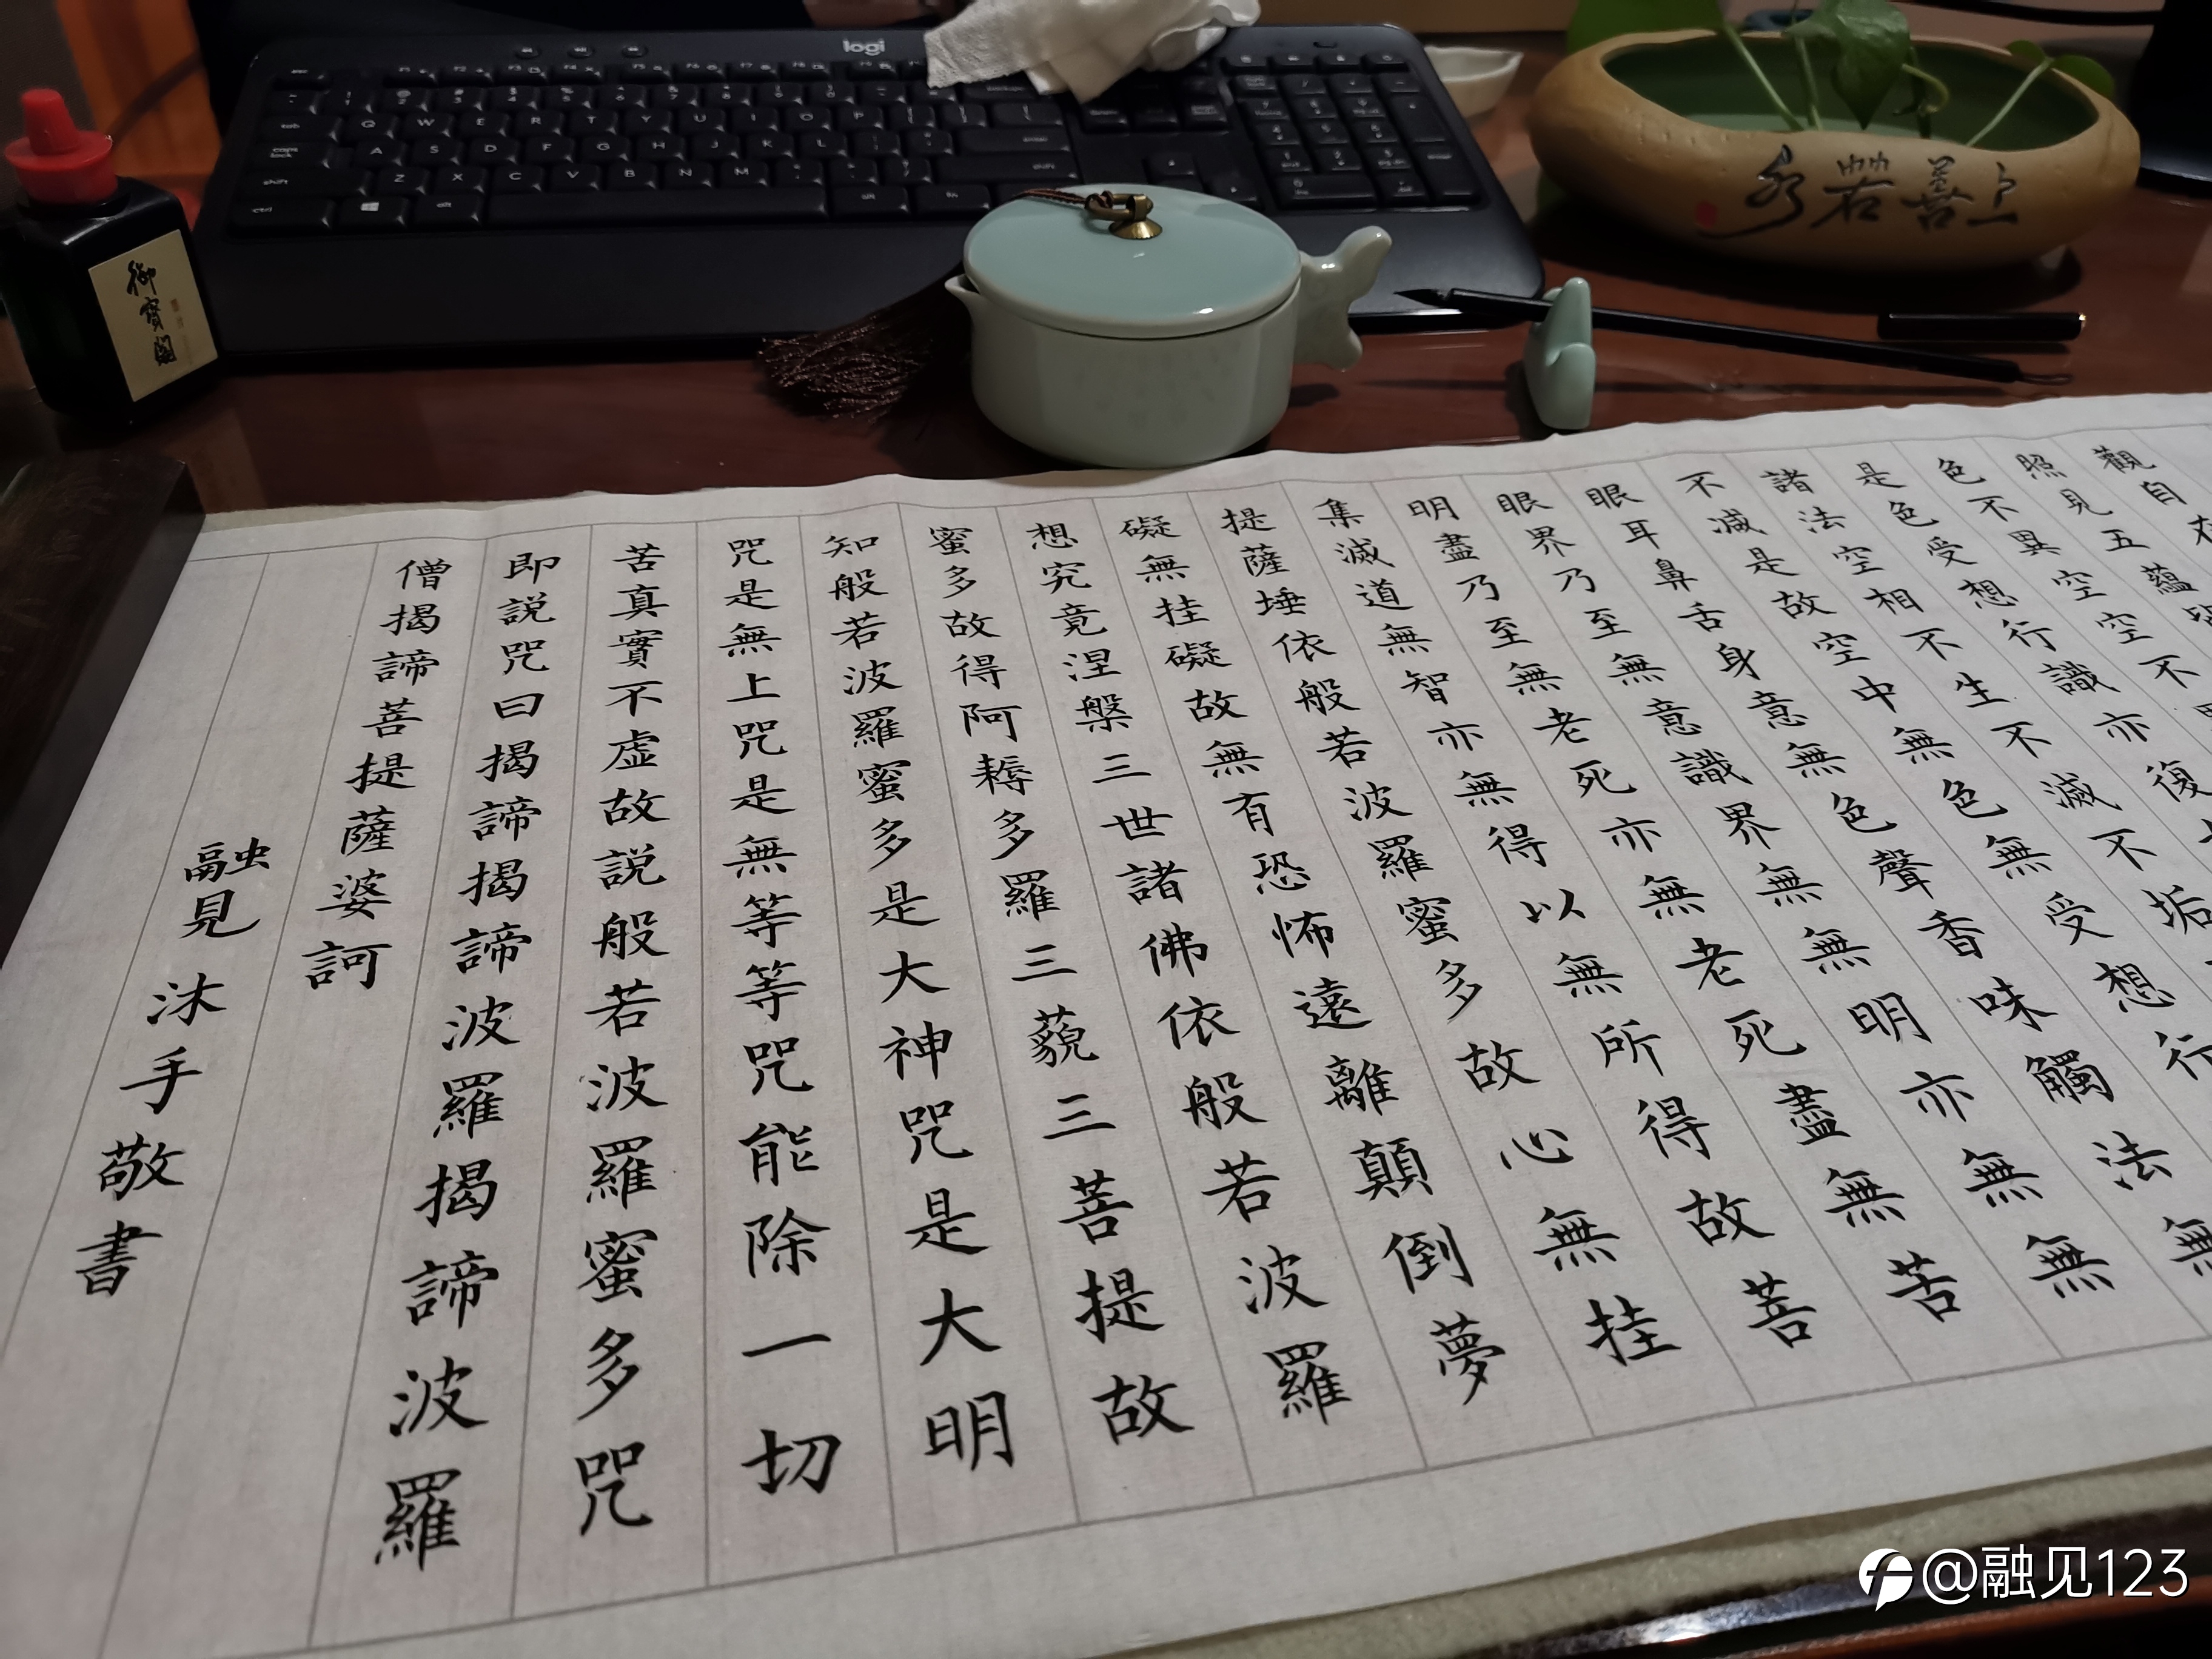 logi
御寳閣
上善若水
觀自
照見五蘊
色不異空空不
是色受想行識亦復
諸法空相不生不滅不垢
不減是故空中無色無受想行
眼耳鼻舌身意無色聲香味觸法無
眼界乃至無意識界無無明亦無無
明盡乃至無老死亦無老死盡無苦
集滅道無智亦無得以無所得故菩
提薩埵依般若波羅蜜多故心無挂
礙無挂礙故無有恐怖遠離顛倒夢
想究竟涅槃三世諸佛依般若波羅
蜜多故得阿耨多羅三藐三菩提故
知般若波羅蜜多是大神咒是大明
咒是無上咒是無等等咒能除一切
苦真實不虛故說般若波羅蜜多咒
即說咒曰揭諦揭諦波羅揭諦波羅
僧揭諦菩提薩婆訶
融見沐手敬書
@融见123